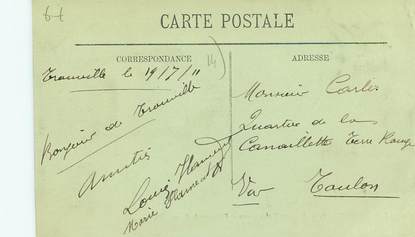 CARTE POSTALE
CORRESPONDANCE
Trouville le 19/7/11
Bonjour de Trouville
Amitiés
Louis
Marie
ADRESSE
Monsieur Carles
Quartier de la
Canaillette Terre Rouge
Toulon
Var